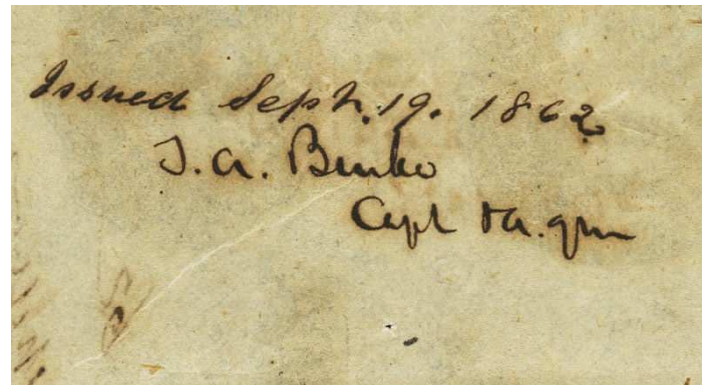 Issued Sept. 19. 1862
J. A. Burke
Capt & A. qm